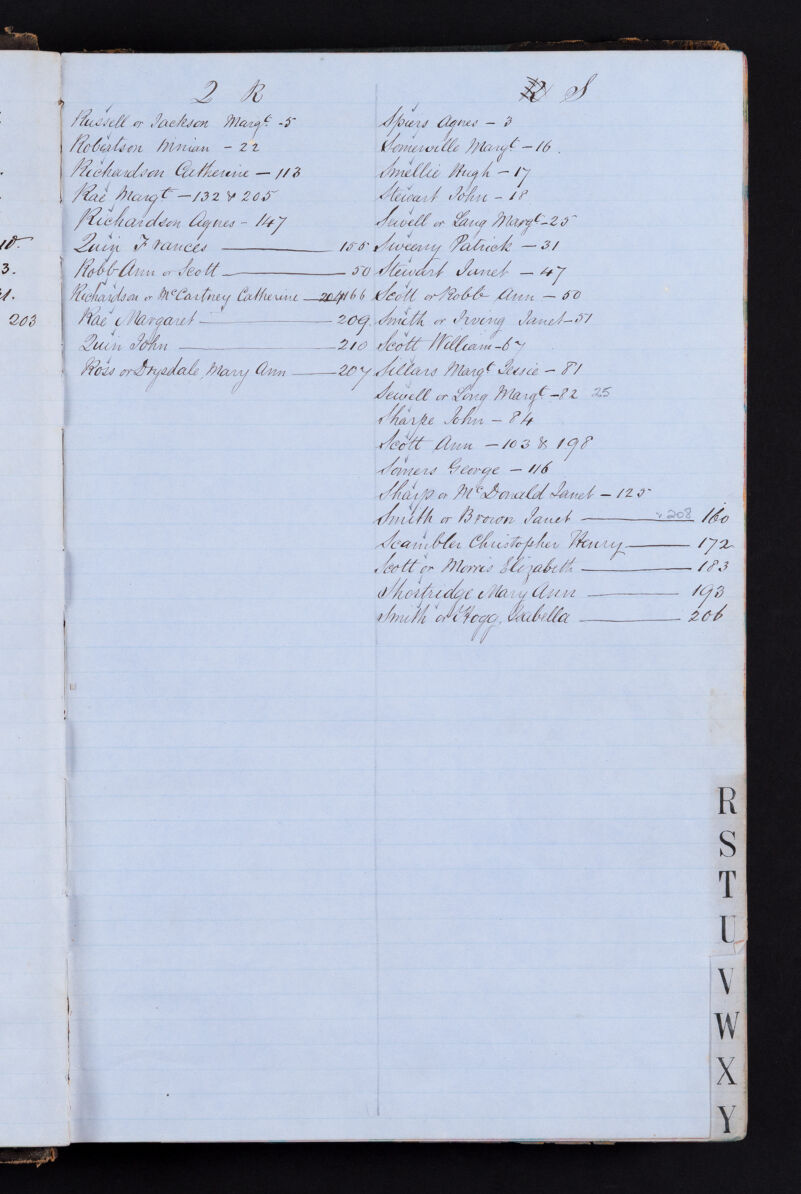 10.
3.
203
Q R
Russell or Jackson Margt. - 5
Robertson - 22
Richardson Catherine - 113
Rae Margt - 132 & 205
Richardson Agnes - 147
Quin Frances 155
Robb Ann or Scott 50
Richardson or McCartney Catherine 166
Rae Margaret 209
Quin John 210
Ross or Drysdale, Mary Ann 207
S
Spiers Agnes - 3
Somerville Margt - 16.
Smellie Hugh - 17
Stewart John - 18
Sewell or Lang Margt - 25
Sweeny Patrick - 31
Stewart Janet - 47
Scott or Robb Ann - 50
Smith or Irving Janet - 51
Scott William - 67
Sillars Margt Jessie - 81
Sewell or Long Margt - 82 25
Sharpe John - 84
Scott Ann - 103 & 198
Somers George - 116
Sharp or McDonald Janet - 125
Smith or Brown Janet & 208 160
Scambler Christopher Henry 172
Scott or Morris Elizabeth 183
Shortridge Mary Ann 193
Smith or Hogg, Isabella 206
R
S
T
U
V
W
X
Y